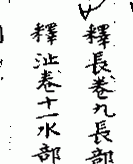 釋長卷九長部
釋沚卷十一水部